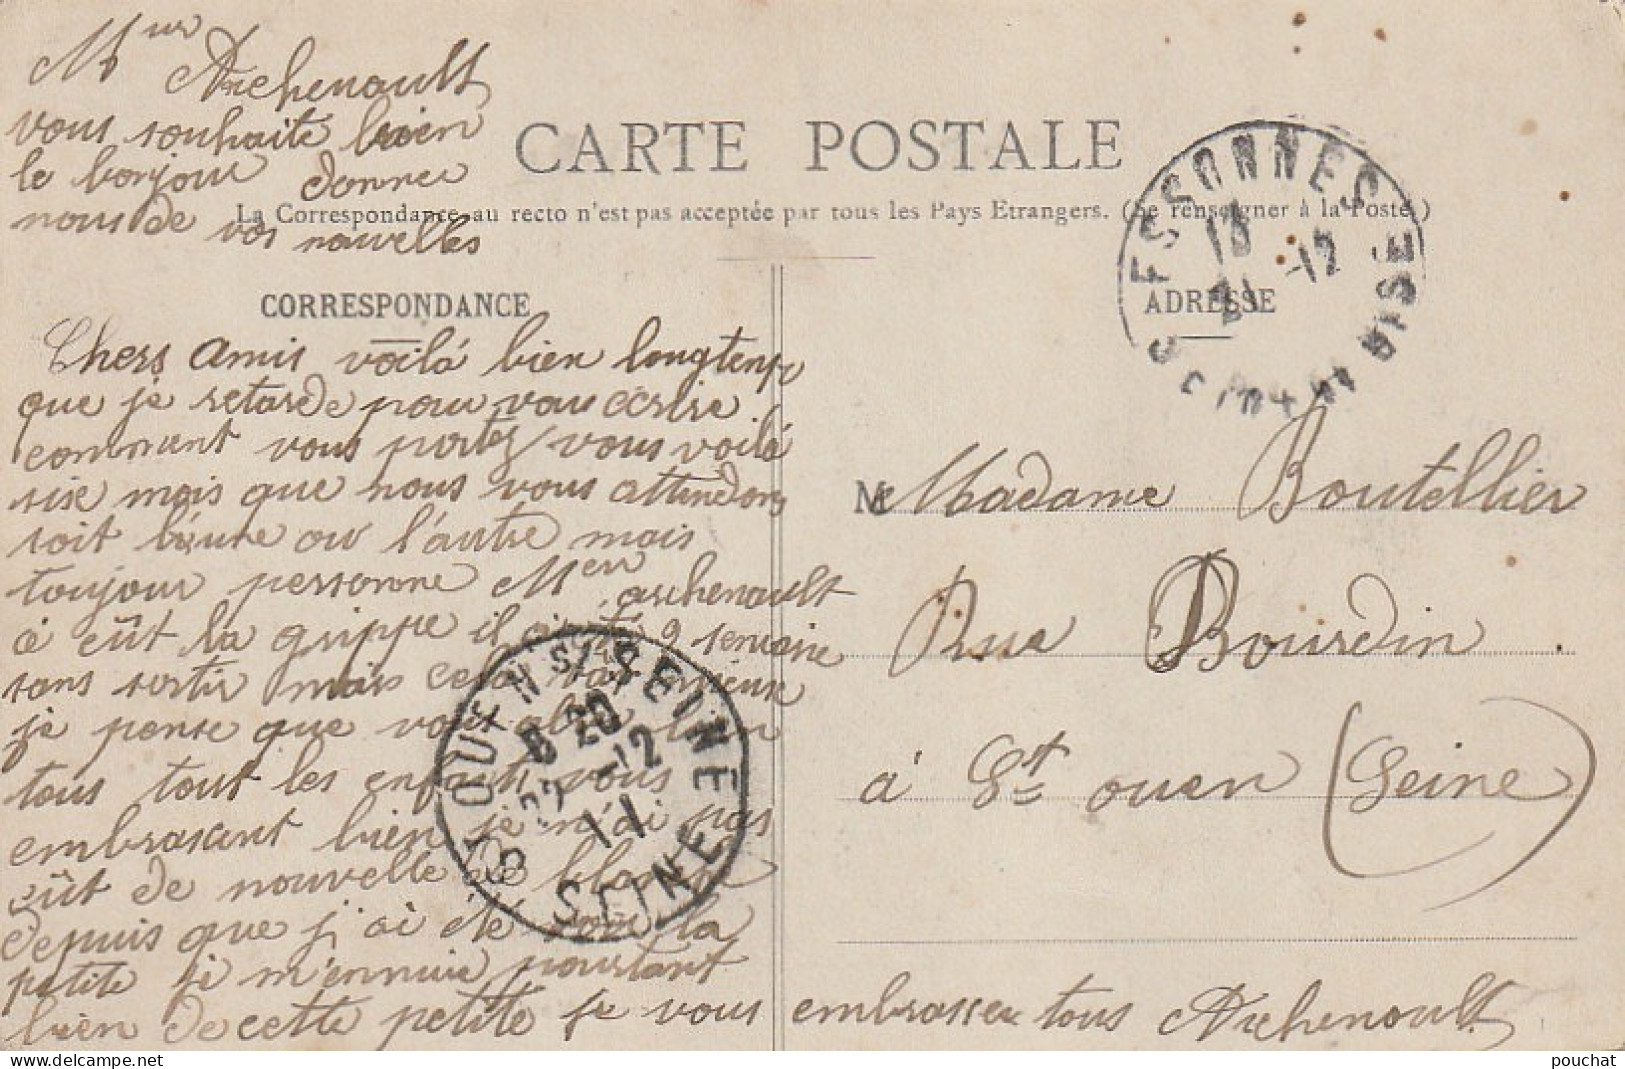 Mr
Archenault
vous souhaite bien
le bonjour donner
nous de vos nouvelles
CARTE POSTALE
La Correspondance au recto n'est pas acceptée par tous les Pays Etrangers. (Se renseigner à la Poste)
CORRESPONDANCE
ADRESSE
Chers amis voilá bien longtemps
que je retarde pour vous écrire
comment vous portez vous voilá
sise mois que nous vous attendons
soit l'eune ou l'autre mais
toujour personne
archenault
à eût la grippe il 9 semaine
sans sortir mais cela vas mieux
je pense que vous
tous tout les enfants vous
embrasent bien je n'ai pas
eût de nouvelle de
depuis que j'ai été la
petite je m'ennuie pourtant
bien de cette petite je vous embrassee tous Archenault
M Madame Boutellier
Rue Bourdin
á St ouen (Seine)
ESSONNES
SEINE ET OISE
13
21 -12
ST OUEN S/ SEINE
6 20
22 -12
11
SEINE
pouchat
delcampe.net